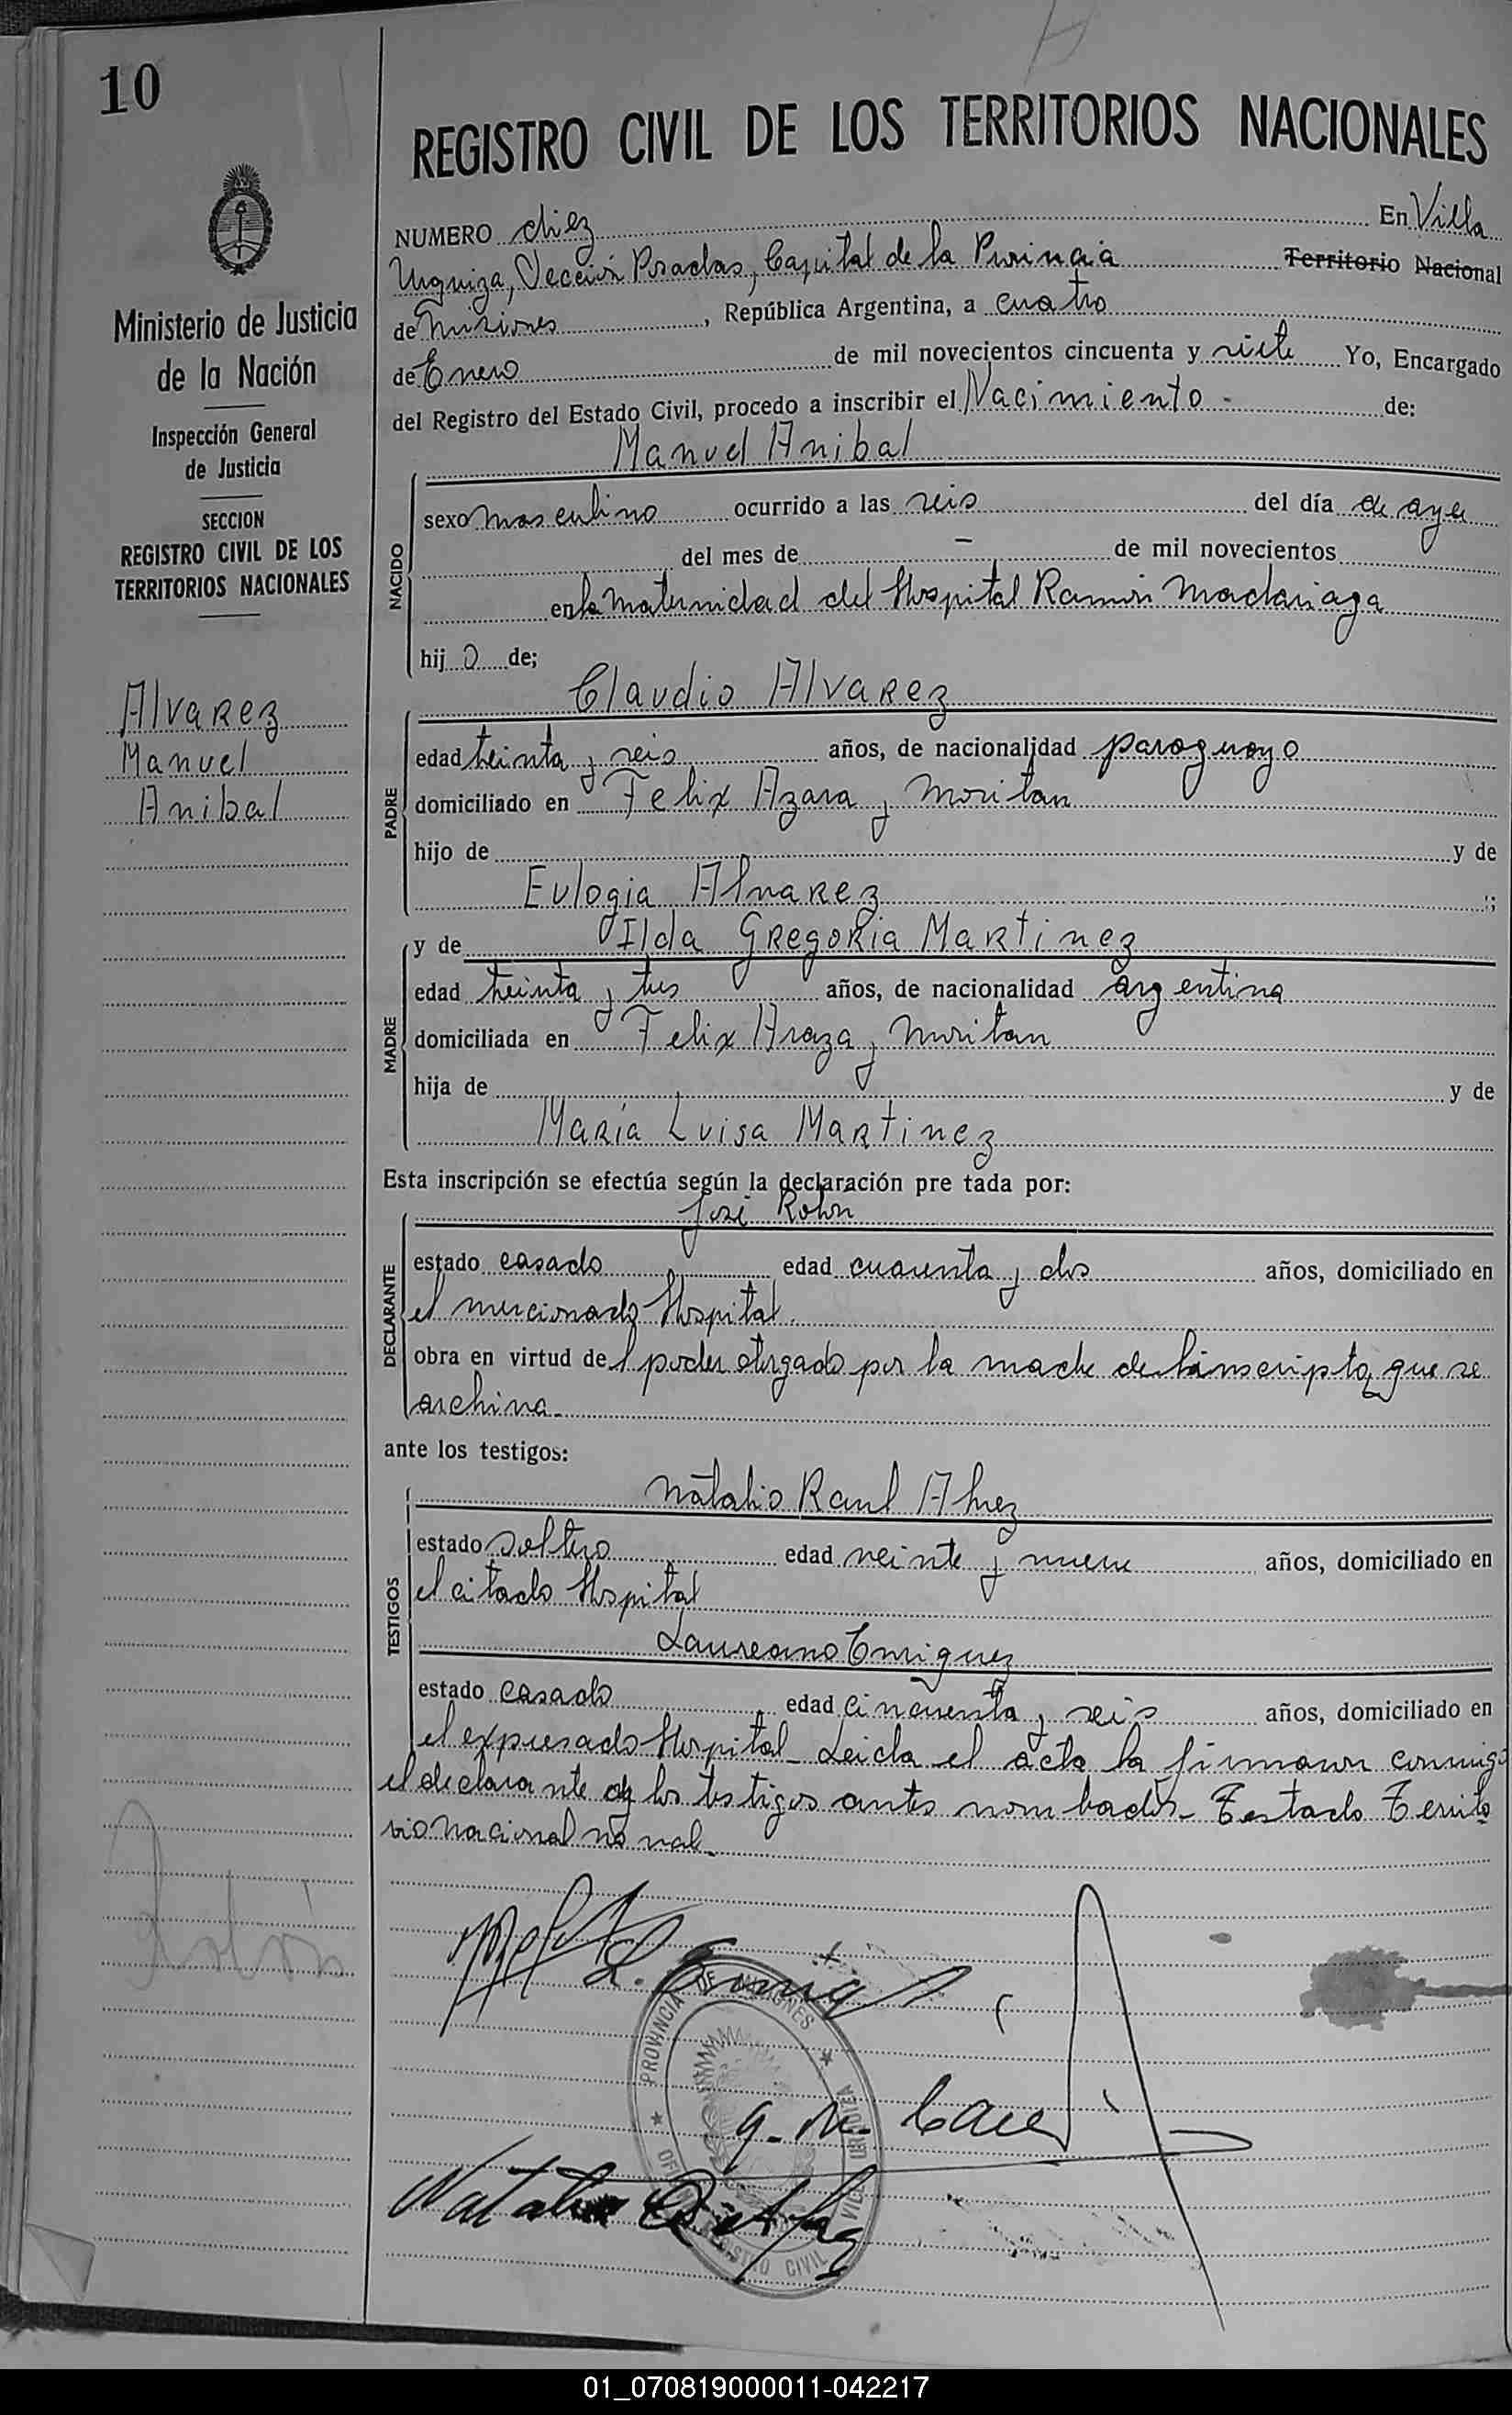 10
REGISTRO CIVIL DE LOS TERRITORIOS NACIONALES
Ministerio de Justicia
de la Nación
Inspección General
de Justicia
SECCION
REGISTRO CIVIL DE LOS
TERRITORIOS NACIONALES
Alvarez
Manuel
Anibal
NUMERO diez En Villa
Urquiza, Sección Posadas, Capital de la Provincia Territorio Nacional
de Misiones, República Argentina, a cuatro
de Enero de mil novecientos cincuenta y siete Yo, Encargado
del Registro del Estado Civil, procedo a inscribir el Nacimiento - de:
Manuel Anibal
NACIDO
sexo masculino ocurrido a las seis del día de ayer
del mes de - de mil novecientos
en la Maternidad del Hospital Ramón Madariaga
hij o de;
Claudio Alvarez
PADRE
edad treinta y seis años, de nacionalidad paraguayo
domiciliado en Felix Azara y
hijo de y de
Eulogia Alvarez ;
y de Ilda Gregoria Martinez
MADRE
edad treinta y tres años, de nacionalidad argentina
domiciliada en Felix Araza y
hija de y de
María Luisa Martinez
Esta inscripción se efectúa según la declaración pre tada por:
José Rohn
DECLARANTE
estado casado edad cuarenta y dos años, domiciliado en
el mencionado Hospital.
obra en virtud de l poder otorgado por la madre del inscripto, que se
archiva.
ante los testigos:
Natalio Raul
TESTIGOS
estado soltero edad veinte y nueve años, domiciliado en
el citado Hospital
Laureano Enriquez
estado casado edad cincuenta y seis años, domiciliado en
el expresado Hospital. Leida el acta la firmaron conmigo
el declarante y los testigos antes nombados. Testado Territo
rio nacional no vale.
PROVINCIA DE MISIONES
REGISTRO CIVIL
01_070819000011-042217